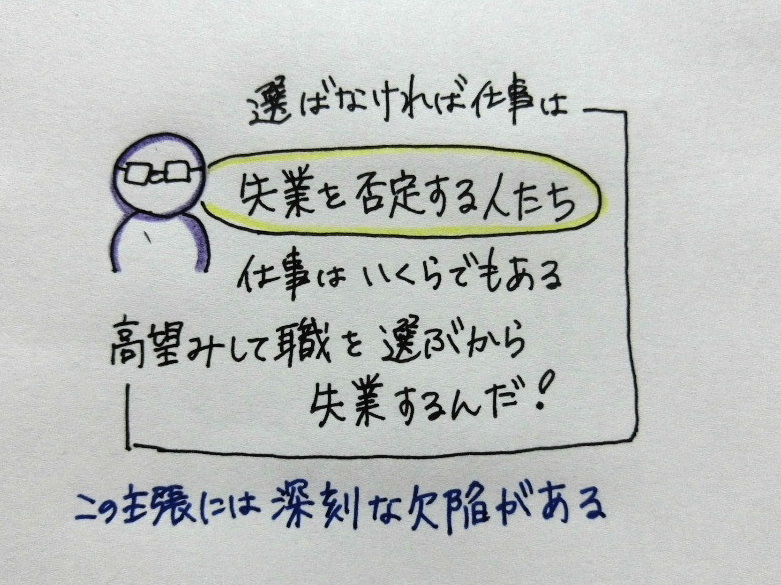 選ばなければ仕事は
失業を否定する人たち
仕事はいくらでもある
高望みして職を選ぶから
失業するんだ!
この主張には深刻な欠陥がある